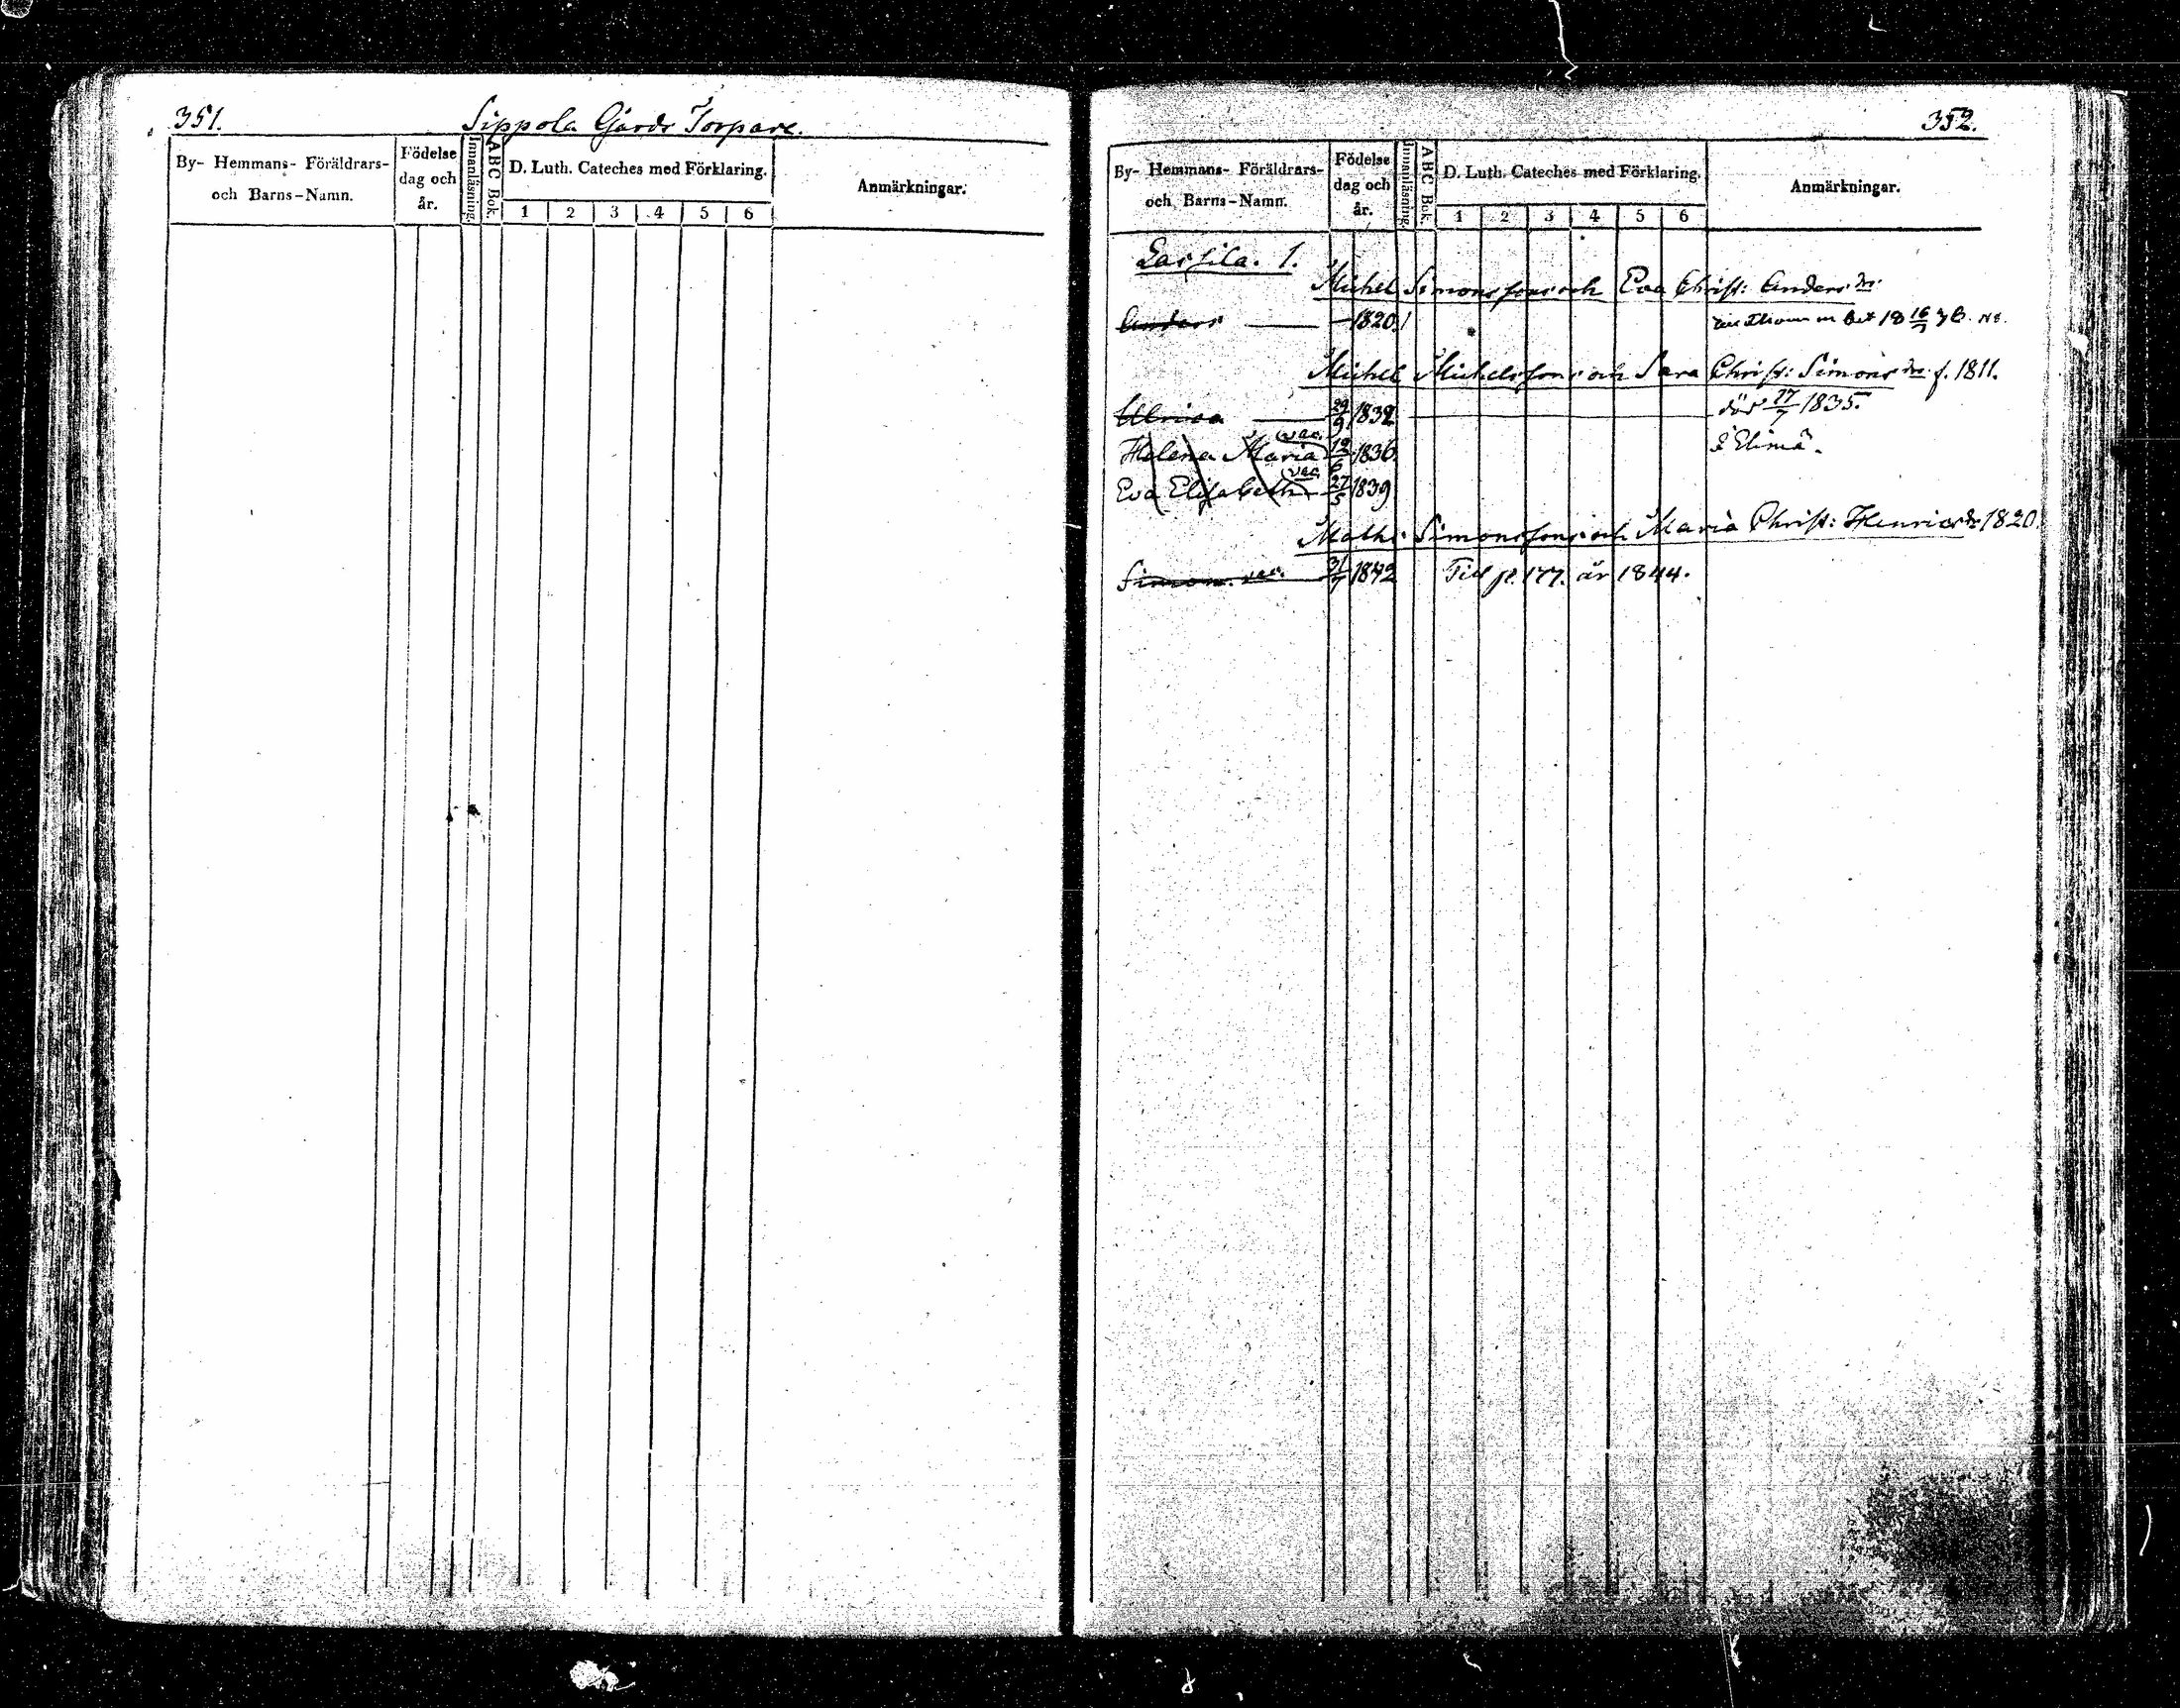 351.
Sippola Gårds Torpare.
By- Hemmans- Föräldrars- och Barns-Namn.
Födelse dag och år.
Innanläsning.
ABC Bok.
D. Luth. Cateches med Förklaring.
1 2 3 4 5 6
Anmärkningar.
352.
By- Hemmans- Föräldrars- och Barns-Namn.
Födelse dag och år.
Innanläsning.
ABC Bok.
D. Luth. Cateches med Förklaring.
1 2 3 4 5 6
Anmärkningar.
Lassila. 1.
Michel Simonsson och Eva Christ: Anders dr
Anders — 1820
Michel Michelsson och Sara Christ: Simons dr f. 1811.
Ulrica 29/9 1832 död 17/7 1835.
Helena Maria vac. 12/6 1836 i Elimä.
Eva Elisabeth vac. 27/5 1839
Math: Simonsson och Maria Christ: Henricsdr 1820
Simon. vac. 31/7 1842 Till p. 177. år 1844.